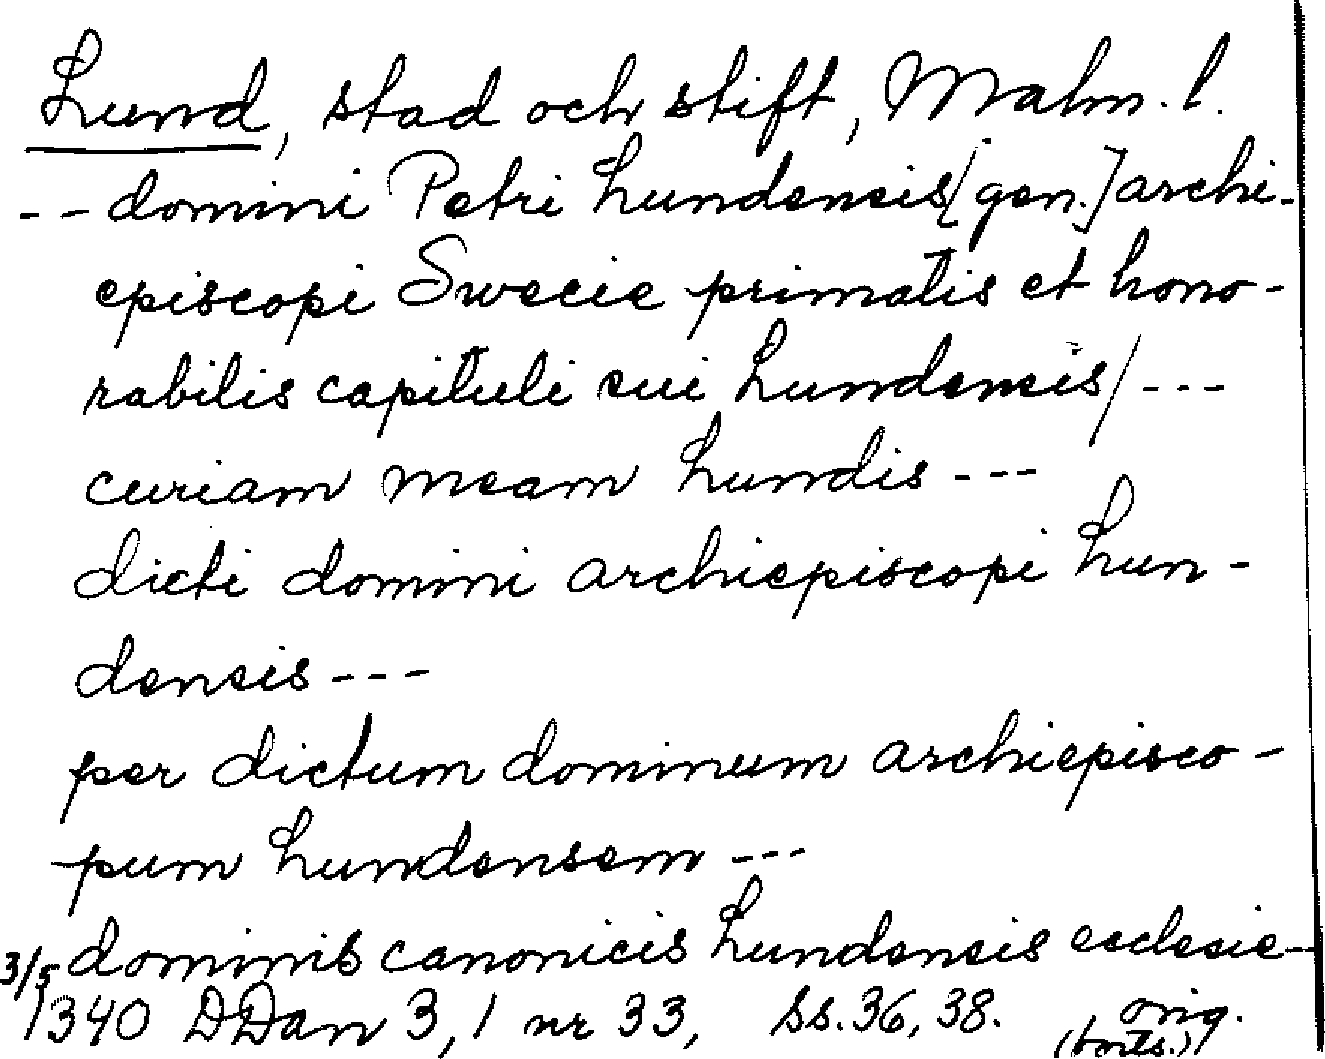 Lund, stad och stift, Malm. l.
-- domini Petri Lundensis [gen.] archi-
episcopi Swecie primatis et hono-
rabilis capituli sui Lundensis / ---
curiam meam Lundis ---
dicti domini archiepiscopi Lun-
densis ---
per dictum dominum archiepisco-
pum Lundensem ---
dominis canonicis Lundensis ecclesie --
3/5 1340 DDan 3,1 nr 33, ss. 36, 38. orig.
(forts.)